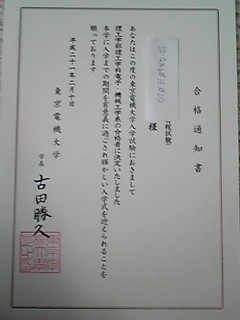 合格通知書
様
あなたはこの度の東京電機大学入学試験におきまして
理工学部理工学科電子・機械工学系の合格者に決定いたしました
本学に入学までの期間を有意義に過ごされ輝かしい入学式を迎えられることを
願っております
平成二十一年二月十日
東京電機大学
学長 古田勝久